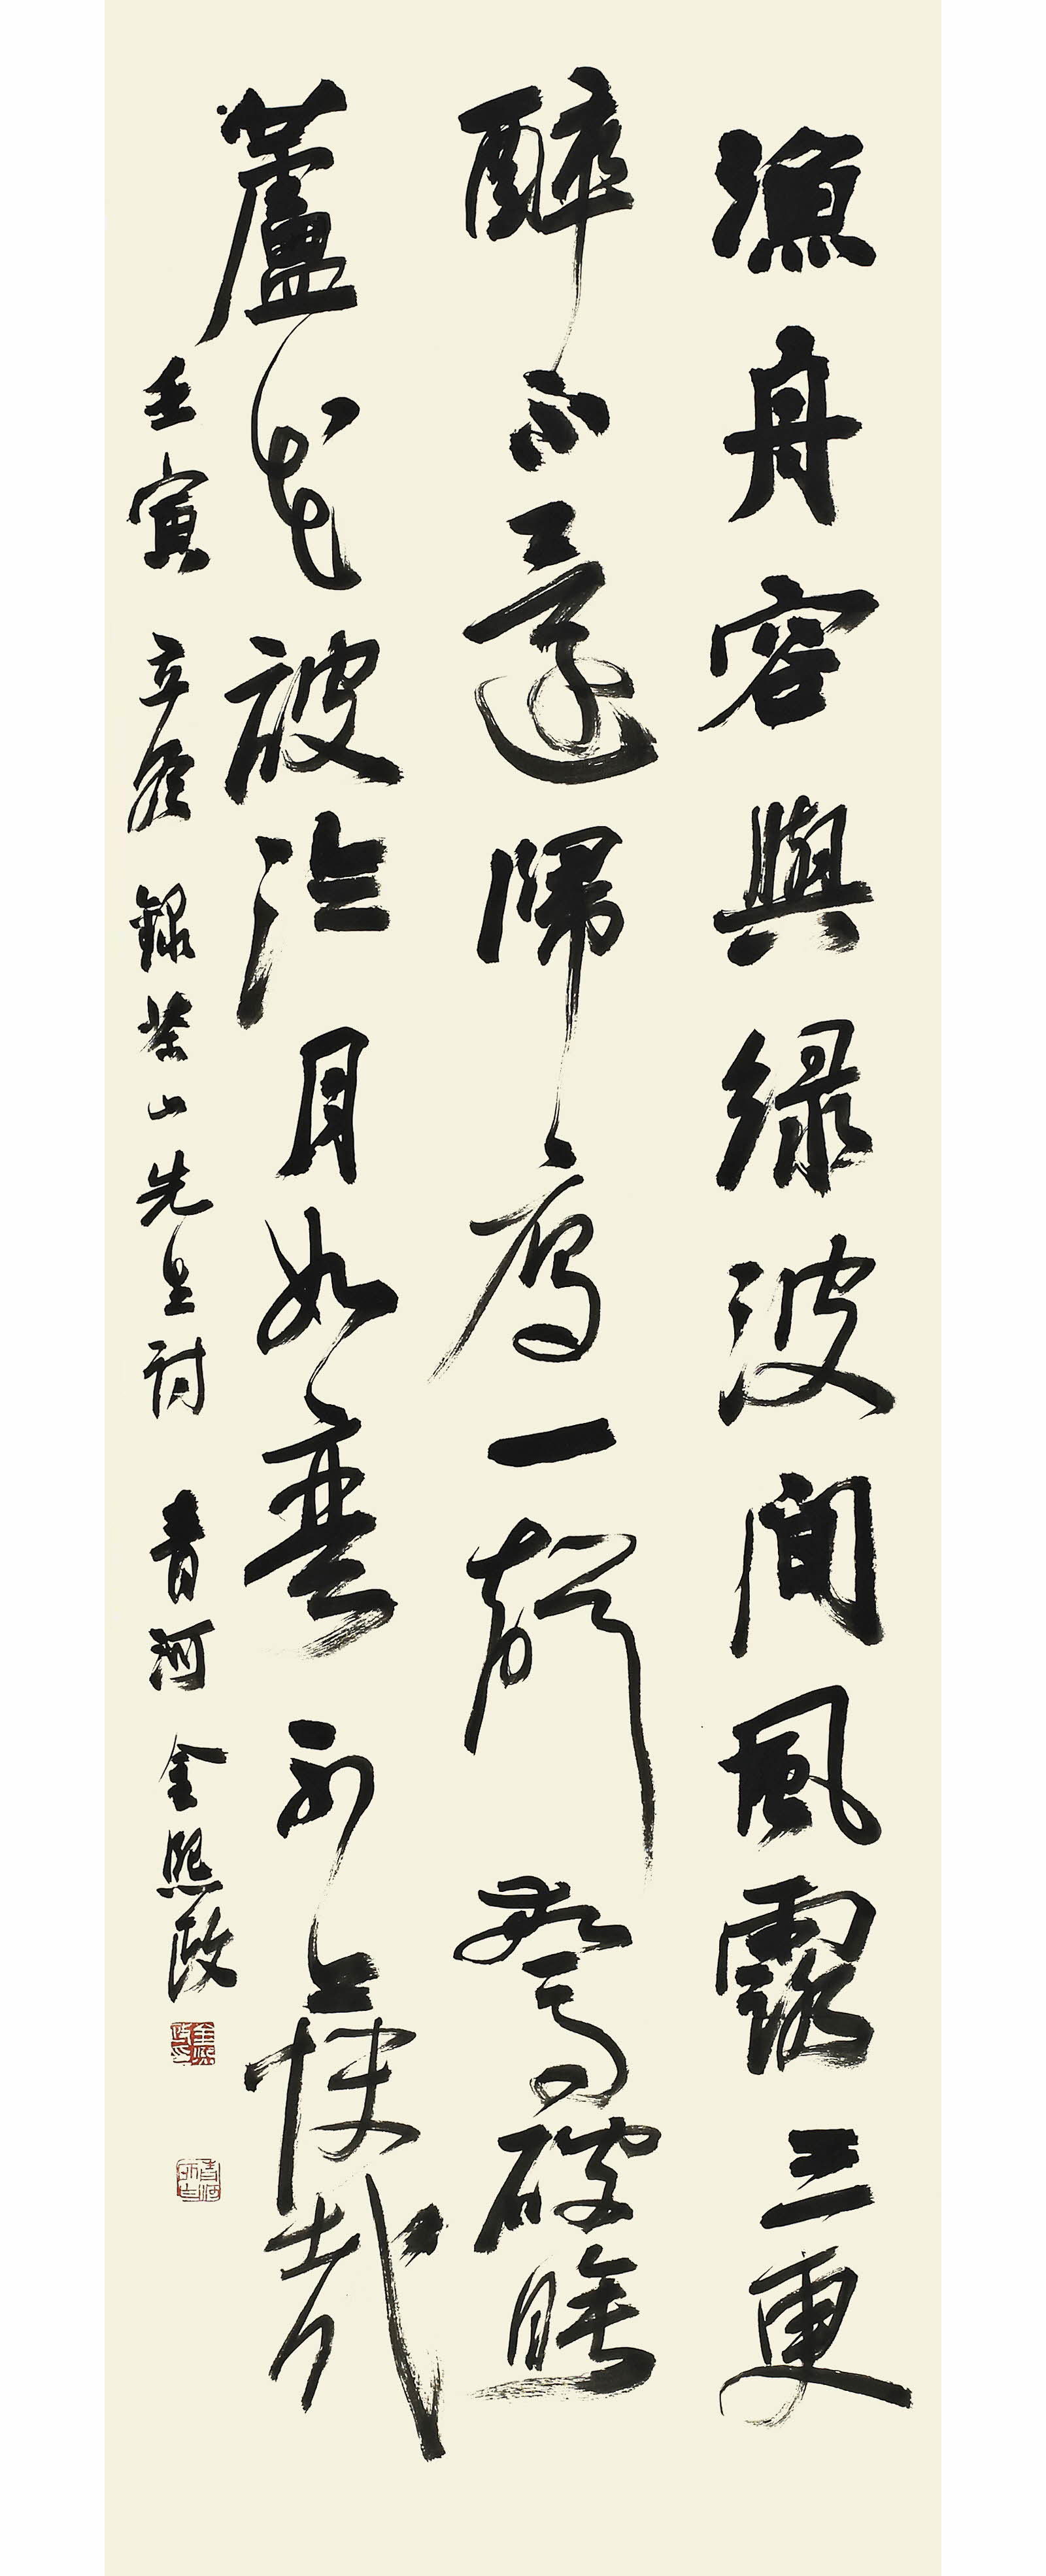 漁舟容與綠波間風露三更
醉不還歸鴈一聲驚破睡
蘆花被冷月如彎不亦快哉
壬寅 立 錄 山先生詩 青河 金熙政